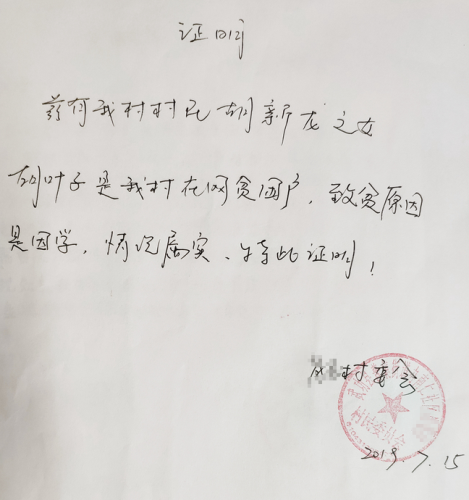 证明
兹有我村村民胡新龙之女
胡叶子是我村在网贫困户，致贫原因
是因学，情况属实、特此证明！
村委会
村民委员会
2019.7.15